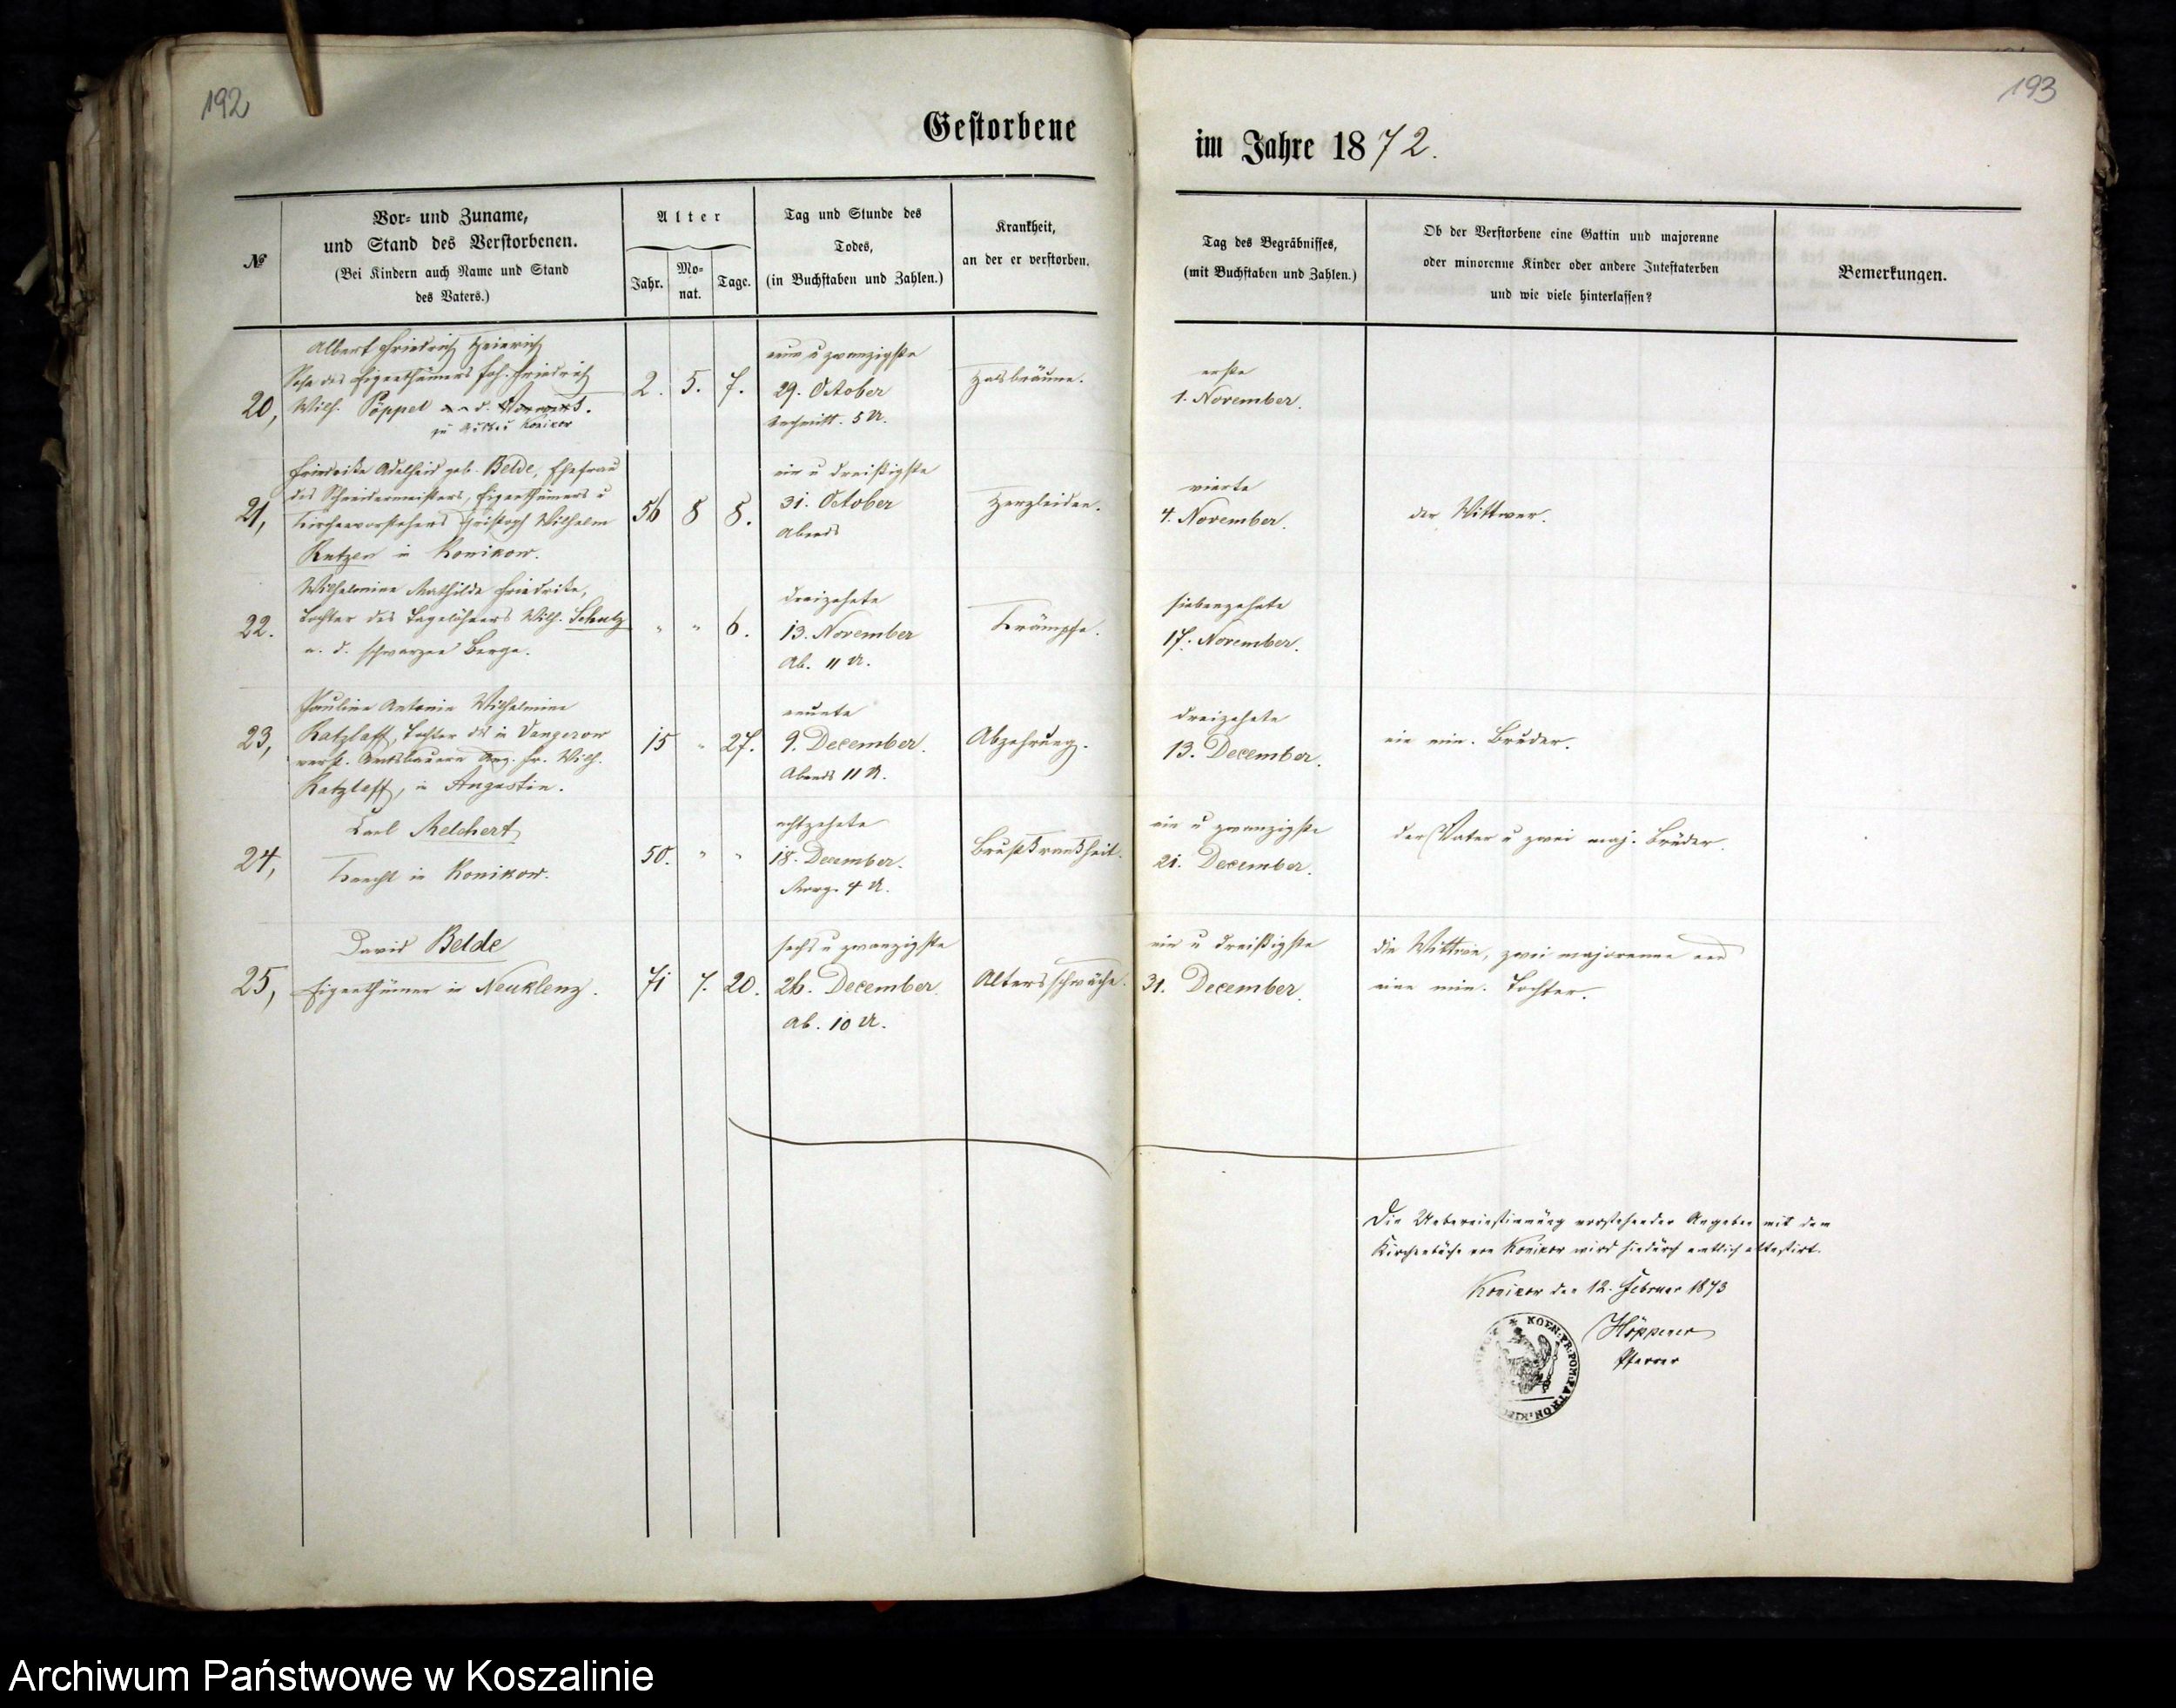 192
193
Gestorbene
im Jahre 1872.
№
Vor- und Zuname,
und Stand des Verstorbenen.
(Bei Kindern auch Name und Stand
des Vaters.)
Alter
Jahr.
Mo-
nat.
Tage.
Tag und Stunde des
Todes,
(in Buchstaben und Zahlen.)
Krankheit,
an der er verstorben.
Tag des Begräbnisses,
(mit Buchstaben und Zahlen.)
Ob der Verstorbene eine Gattin und majorenne
oder minorenne Kinder oder andere Intestaterben
und wie viele hinterlassen?
Bemerkungen.
20,
Albert Friedrich Heinrich
Sohn des Eigenthümers Joh. Friedrich
Wilh. Pöppel
zu Konikow
2. 5. 7.
neun u zwanzigste
29. October
Nachmitt. 5 U.
Halsbräune.
erste
1. November.
21,
Friederike Adelheid geb. Belde, Ehefrau
des Schneidermeisters, Eigenthümers u
Kirchenvorstehers Christoph Wilhelm
Rutzen in Konikow.
56 8 8.
ein u dreißigste
31. October
Abends
Herzleiden.
vierte
4. November.
der Wittwer.
22.
Wilhelmine Mathilde Friedrike,
Tochter des Tagelöhners Wilh. Schulz
a. d. schwarzen Berge.
" " 6.
dreizehnte
13. November
Ab. 11 U.
Krämpfe.
siebenzehnte
17. November.
23,
Pauline Antonie Wilhelmine
Ratzlaff, Tochter des in Vangerow
verst. Amtsbauern Aug. Fr. Wilh.
Ratzlaff, in Augustin.
15 " 27.
neunte
9. December.
Abends 11 U.
Abzehrung.
dreizehnte
13. December.
ein min. Bruder.
24,
Carl Melchert
Knecht in Konikow.
50. " "
achtzehnte
18. December.
Morg. 4 U.
Brustkrankheit.
ein u zwanzigste
21. December.
der Vater u zwei maj. Brüder.
25,
David Belde
Eigenthümer in Neuklenz.
71 7. 20.
sechs u zwanzigste
26. December.
Ab. 10 U.
Altersschwäche.
ein u dreißigste
31. December.
die Wittwe, zwei majorenne und
eine min. Tochter.
Die Uebereinstimmung vorstehender Angaben mit dem
Kirchenbuche von Konikow wird hiedurch amtlich attestirt.
Konikow den 12. Februar 1873
Höppener
Pfarrer
KOEN: PR: POM: PATRON: KIR
Archiwum Państwowe w Koszalinie